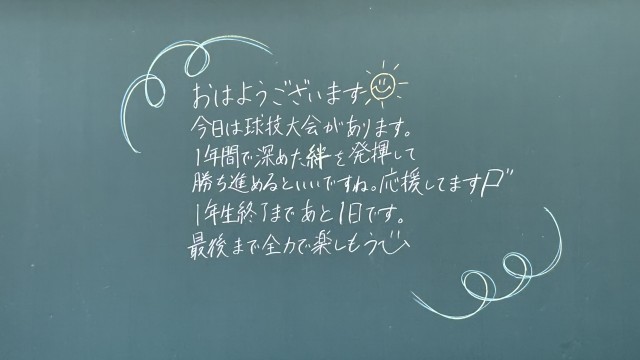 おはようございます
今日は球技大会があります。
1年間で深めた絆を発揮して
勝ち進めるといいですね。応援してます
1年生終了まであと1日です。
最後まで全力で楽しもう